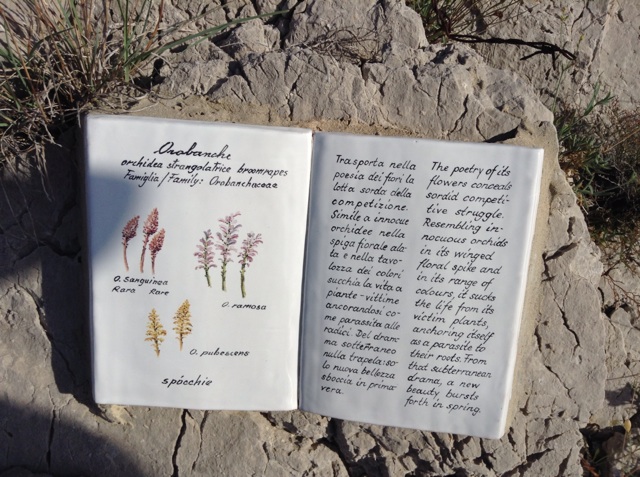 Orobanche
orchidea strangolatrice broomrapes
Famiglia/Family: Orobanchaceae
O. sanguinea
Rara Rare
O. ramosa
O. pubescens
spòcchie
Trasporta nella
poesia dei fiori la
lotta sorda della
competizione.
Simile a innocue
orchidee nella
spiga fiorale ala-
ta e nella tavo-
lozza dei colori
succhia la vita a
piante-vittime
ancorandosi co-
me parassita alle
radici. Del dram-
ma sotterraneo
nulla trapela: so-
lo nuova bellezza
sboccia in prima-
vera.
The poetry of its
flowers conceals
sordid competi-
tive struggle.
Resembling in-
nocuous orchids
in its winged
floral spike and
in its range of
colours, it sucks
the life from its
victim plants,
anchoring itself
as a parasite to
their roots. From
that subterranean
drama, a new
beauty bursts
forth in spring.